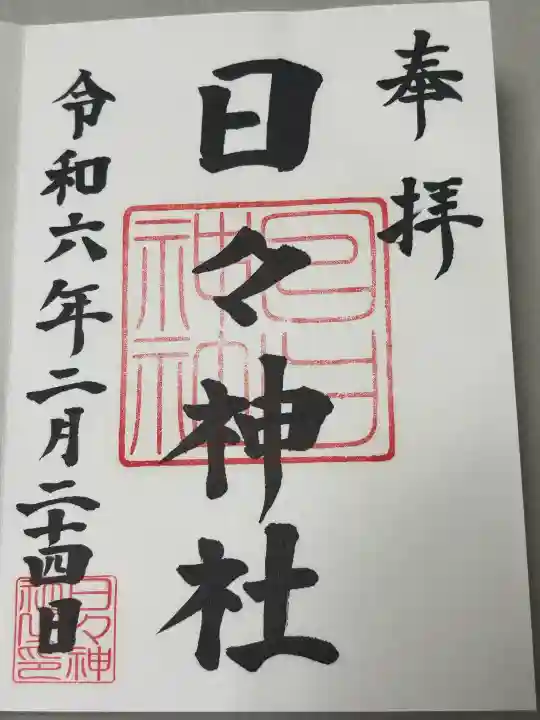 奉拝
日々神社
令和六年二月二十四日
日々神
社之印